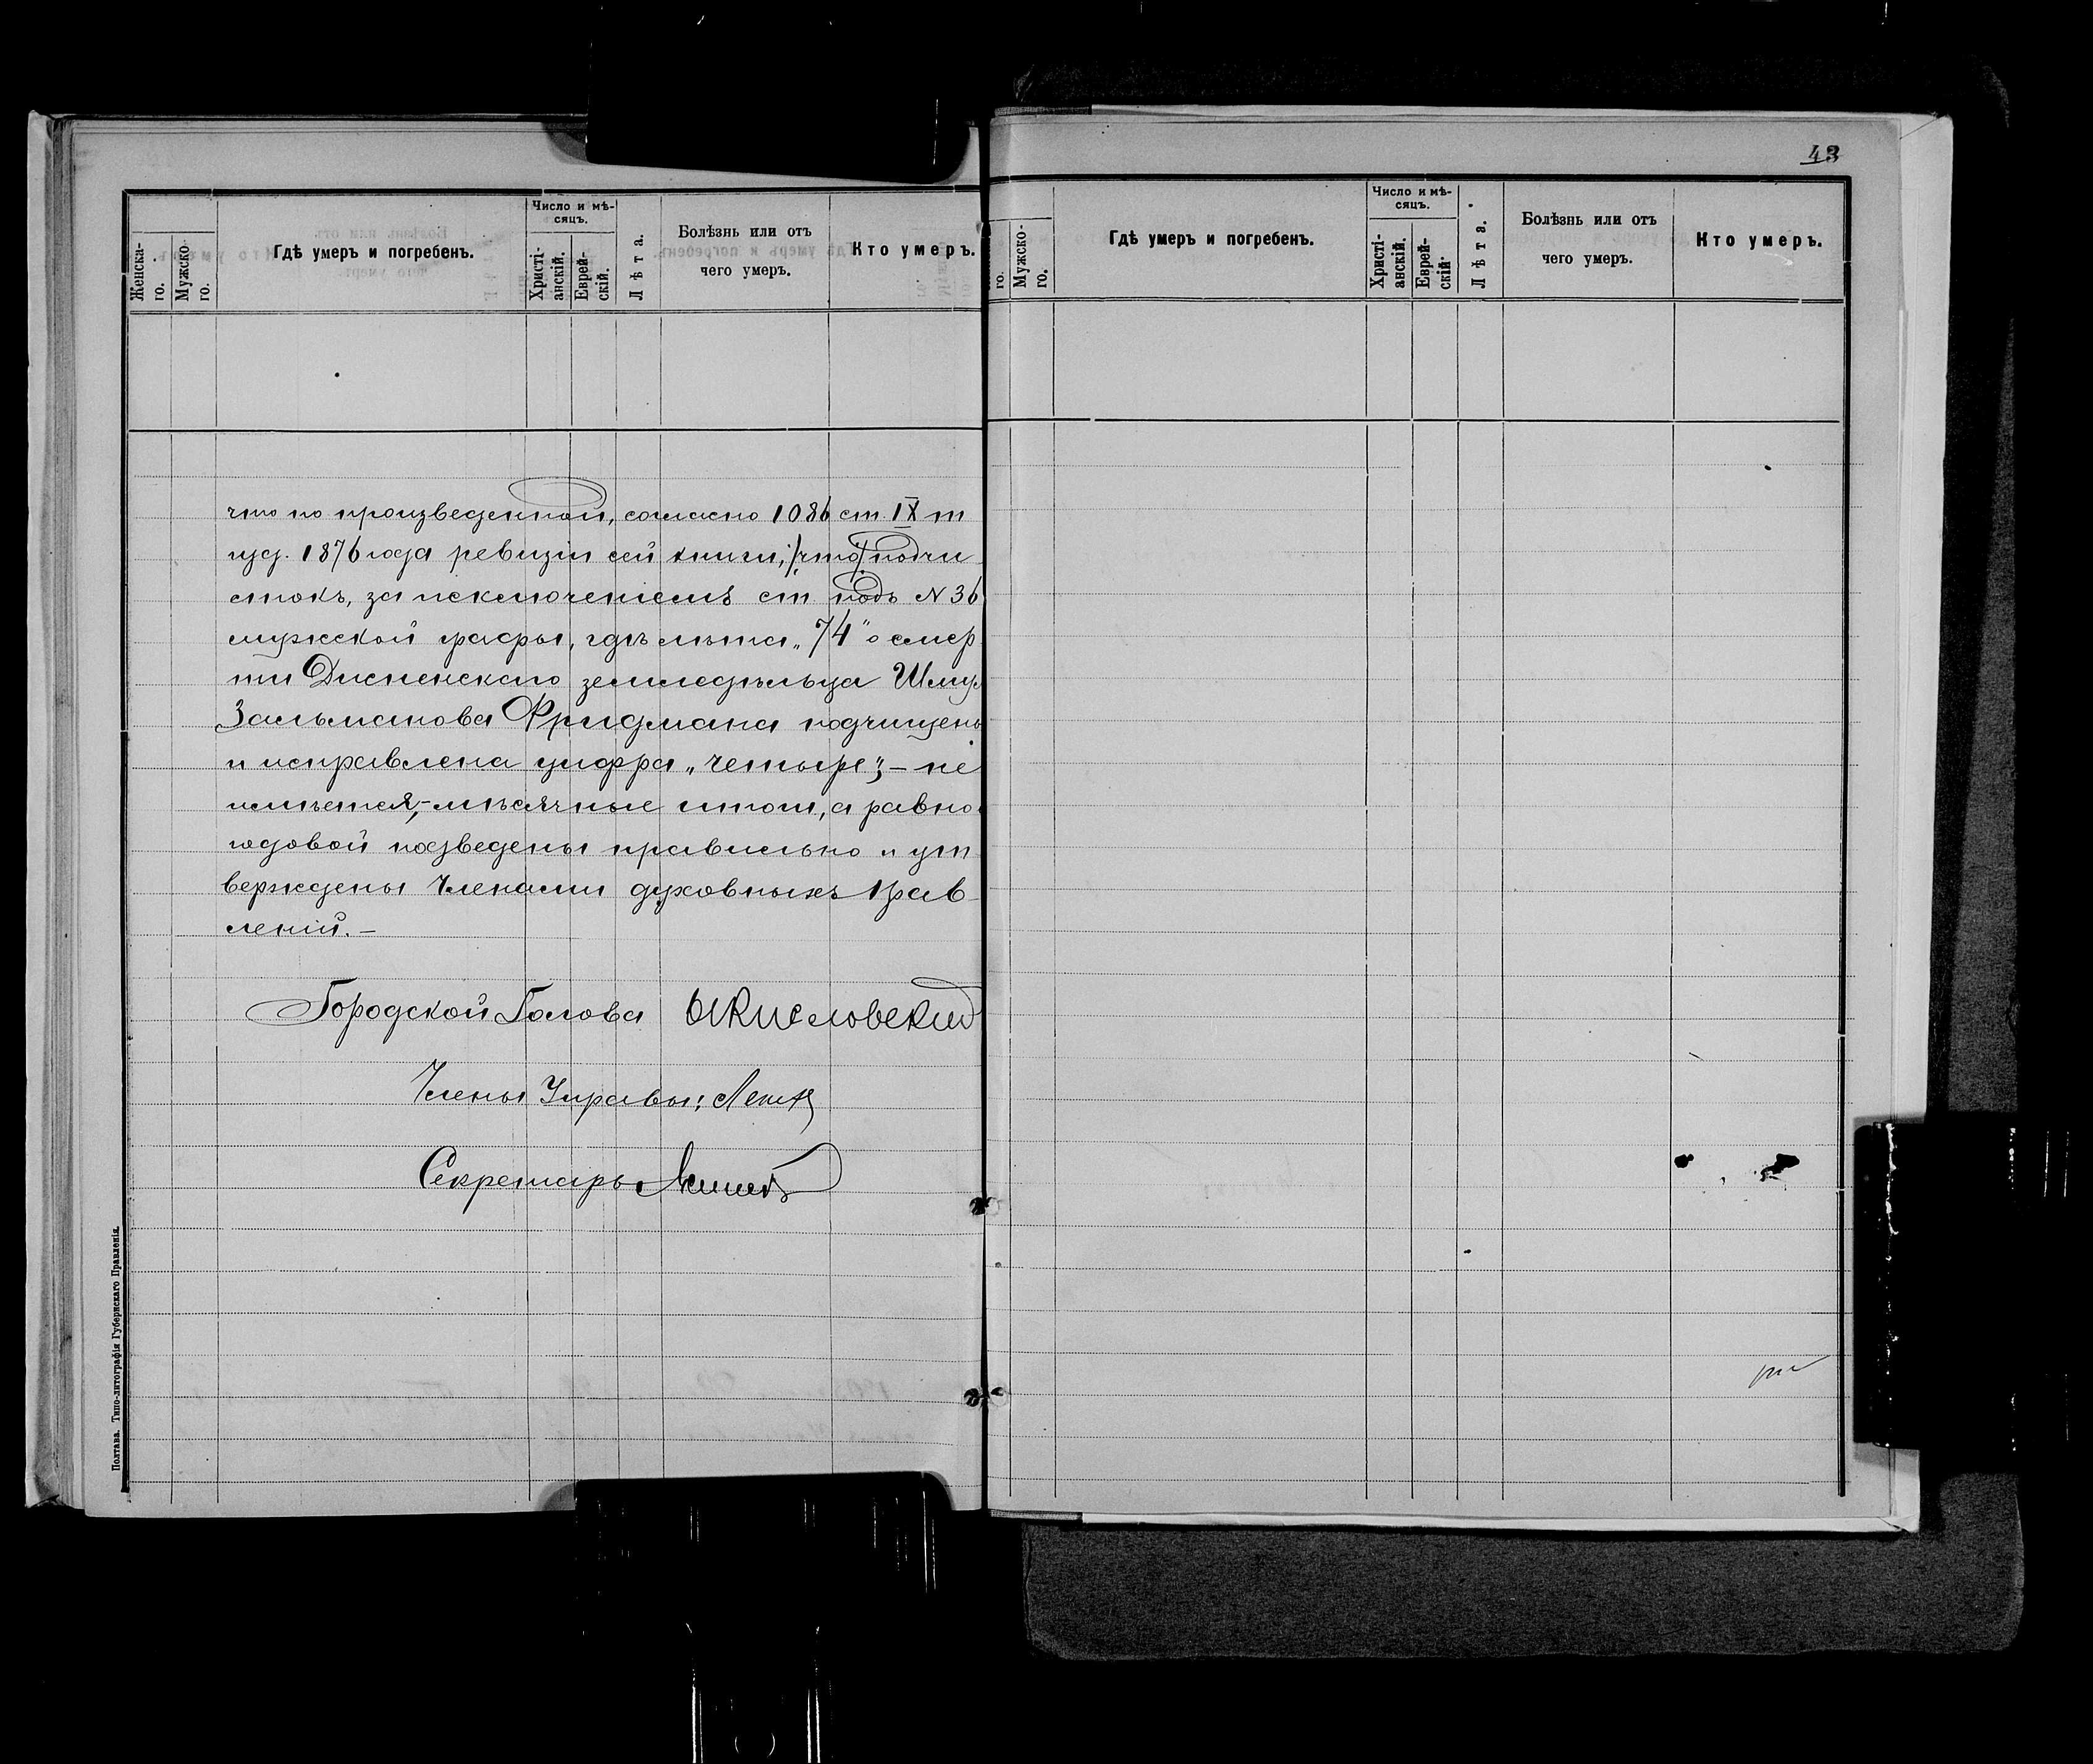 43
Женска-
го.
Мужско-
го.
Гдѣ умеръ и погребенъ.
Число и мѣ-
сяцъ.
Христі-
анскій.
Еврей-
скій.
Лѣта.
Болѣзнь или отъ
чего умеръ.
Кто умеръ.
что по произведенной, согласно 1086 ст. IX т
изд. 1876 года ревизіи сей книги, что подчи
стокъ, за исключеніемъ ст подъ N 36
мужской графы, гдѣ лѣта „74" о смер
ти Дисненскаго земледѣльца
Зальманова Фридмана подчищена
и исправлена цифра „четыре", – не
имѣется, – мѣсячные итоги, а равно
годовой подведены правильно и ут
верждены Членами духовныхъ прав
леній. –
Городской Голова
Члены Управы:
Секретарь
Полтава. Типо-литографія Губернскаго Правленія.
го.
Мужско-
го.
Гдѣ умеръ и погребенъ.
Число и мѣ-
сяцъ.
Христі-
анскій.
Еврей-
скій.
Лѣта.
Болѣзнь или отъ
чего умеръ.
Кто умеръ.